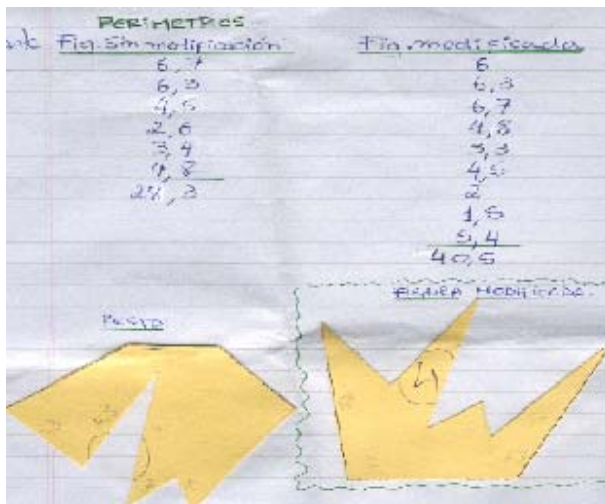 PERIMETROS
Fig. Sin modificación
6,7
6,3
4,5
2,6
3,4
4,8
Fig. modificada
6
6,3
6,7
4,8
3,3
4,5
2
1,5
5,4
40,5
RESTO
FIGURA MODIFICADA.
4